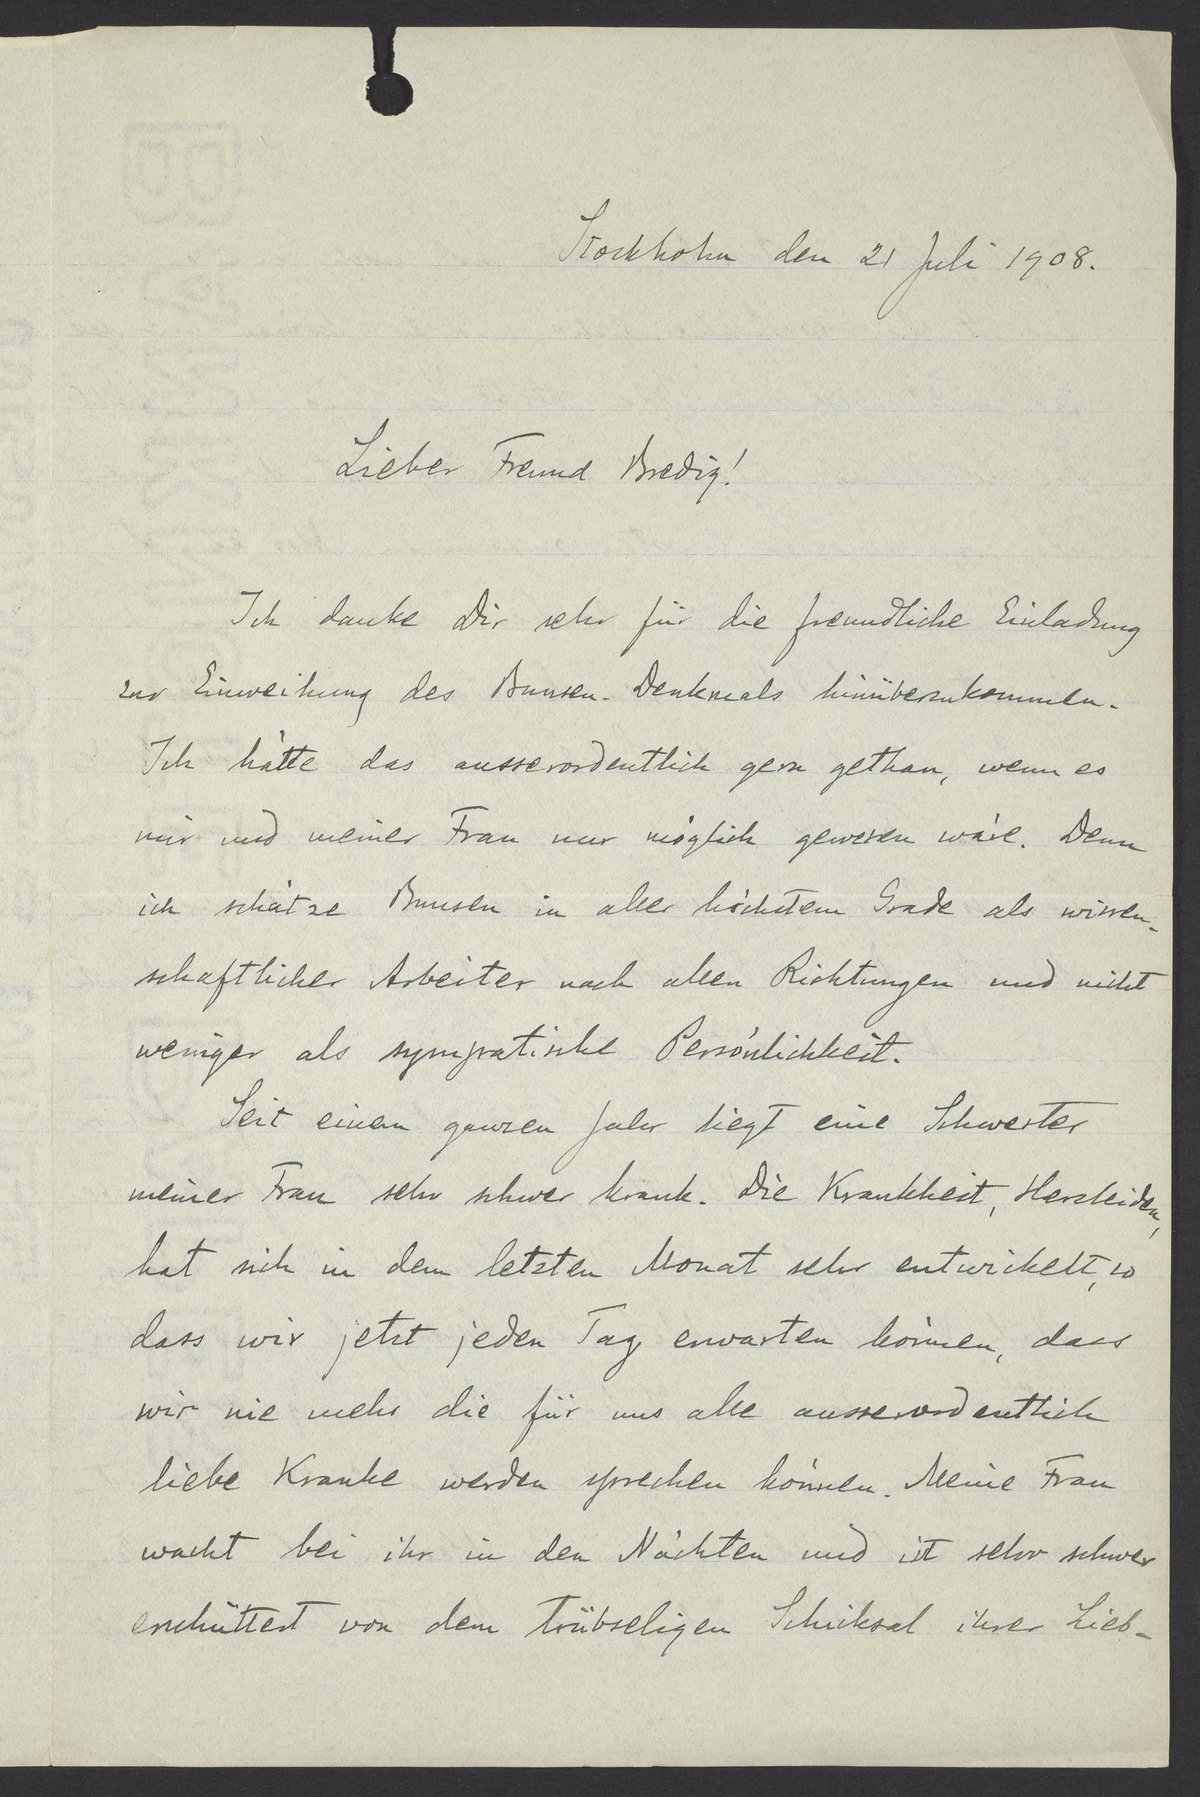 Stockholm den 21 Juli 1908.
Lieber Freund Bredig!
Ich danke Dir sehr für die freundliche Einladung
zur Einweihung des Bunsen-Denkmals hinüberzukommen.
Ich hätte das ausserordentlich gern gethan, wenn es
mir und meiner Frau nur möglich gewesen wäre. Denn
ich schätze Bunsen in aller höchstem Grade als wissen-
schaftlicher Arbeiter nach allen Richtungen und nicht
weniger als sympatische Persönlichkeit.
Seit einem ganzen Jahr liegt eine Schwester
meiner Frau sehr schwer krank. Die Krankheit, Herzleiden,
hat sich in dem letzten Monat sehr entwickelt, so
dass wir jetzt jeden Tag erwarten können, dass
wir nie mehr die für uns alle ausserordentlich
liebe Kranke werden sprechen können. Meine Frau
wacht bei ihr in den Nächten und ist sehr schwer
erschüttert von dem trübseligen Schicksal ihrer Lieb-